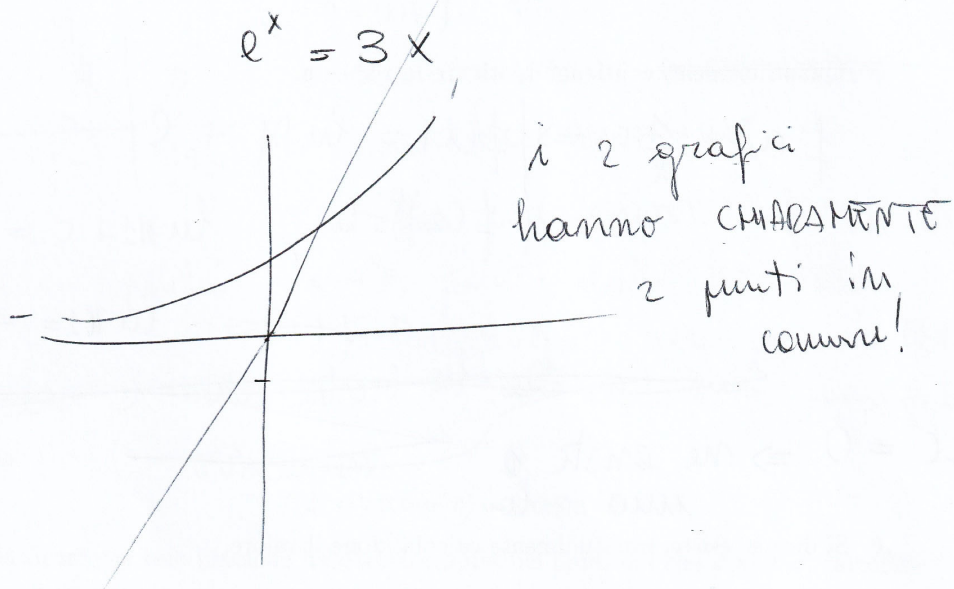 e^x = 3x
i 2 grafici
hanno CHIARAMENTE
2 punti in
comune!